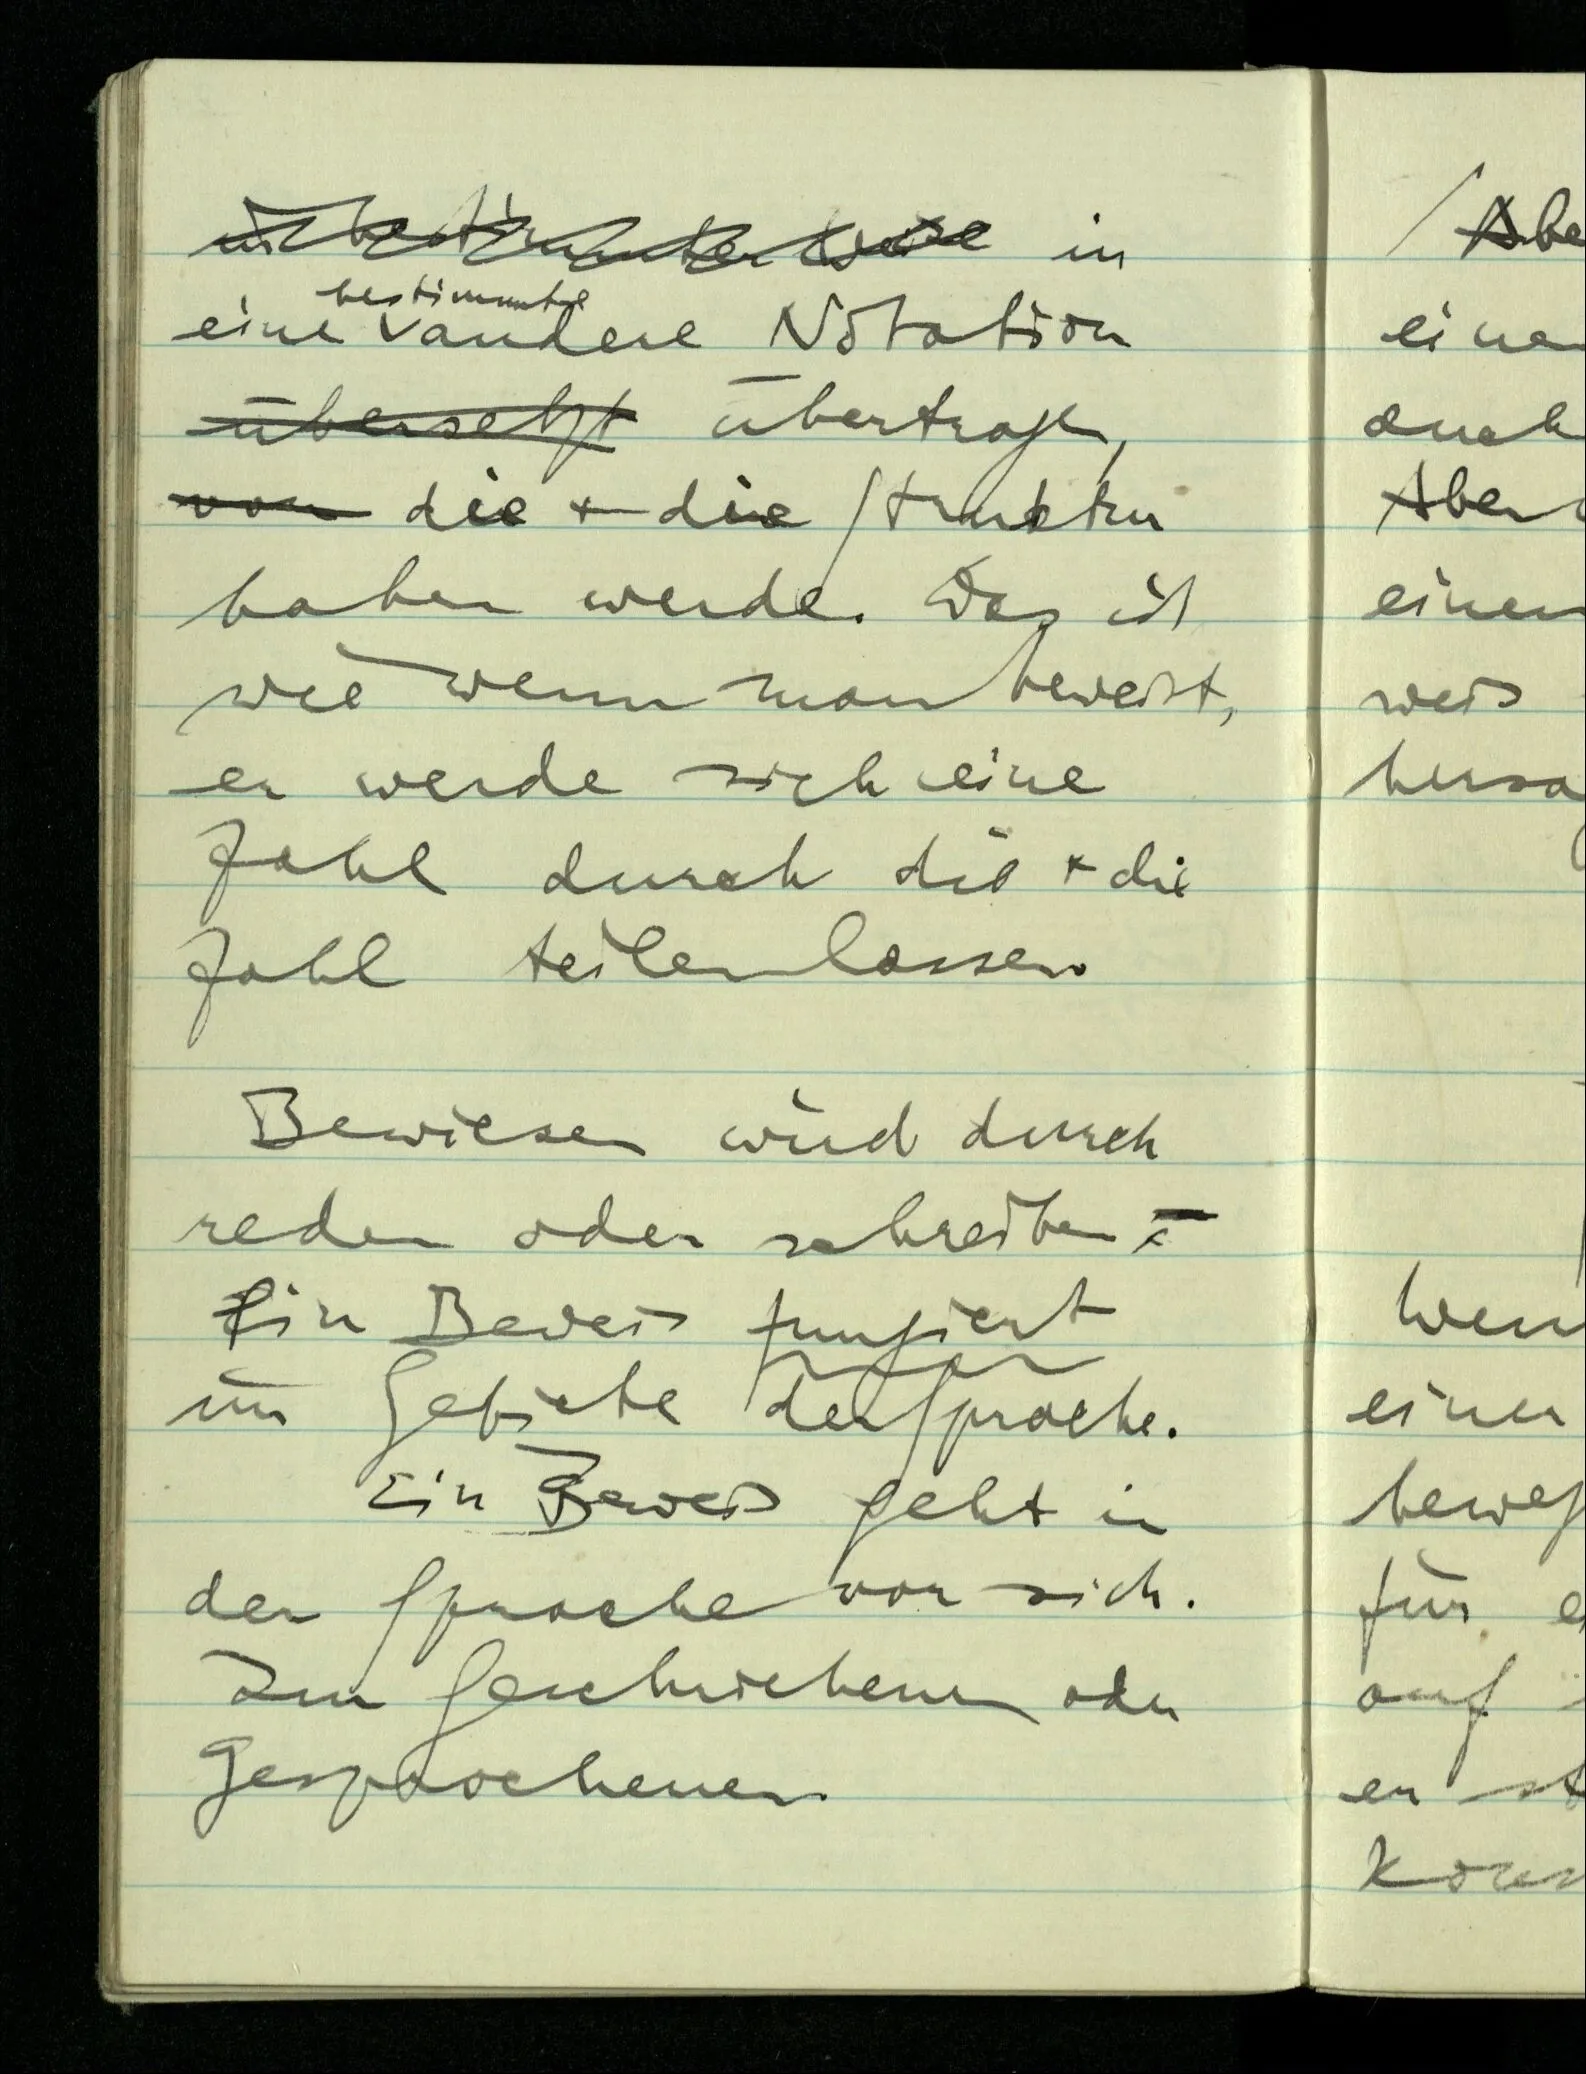 in bestimmter Weise in
bestimmte
eine andere Notation
übersetzt übertragen,
von die + die Struktur
haben werde. Das ist
wie wenn man beweist,
er werde sich eine
Zahl durch die + die
Zahl teilen lassen
Bewiesen wird durch
reden oder schreiben
Ein Beweis fungiert
im Gebiete der Sprache.
Ein Beweis geht in
der Sprache vor sich.
Im Geschriebenen oder
Gesprochenen
einen
auch
einen
weis
für
auf
er